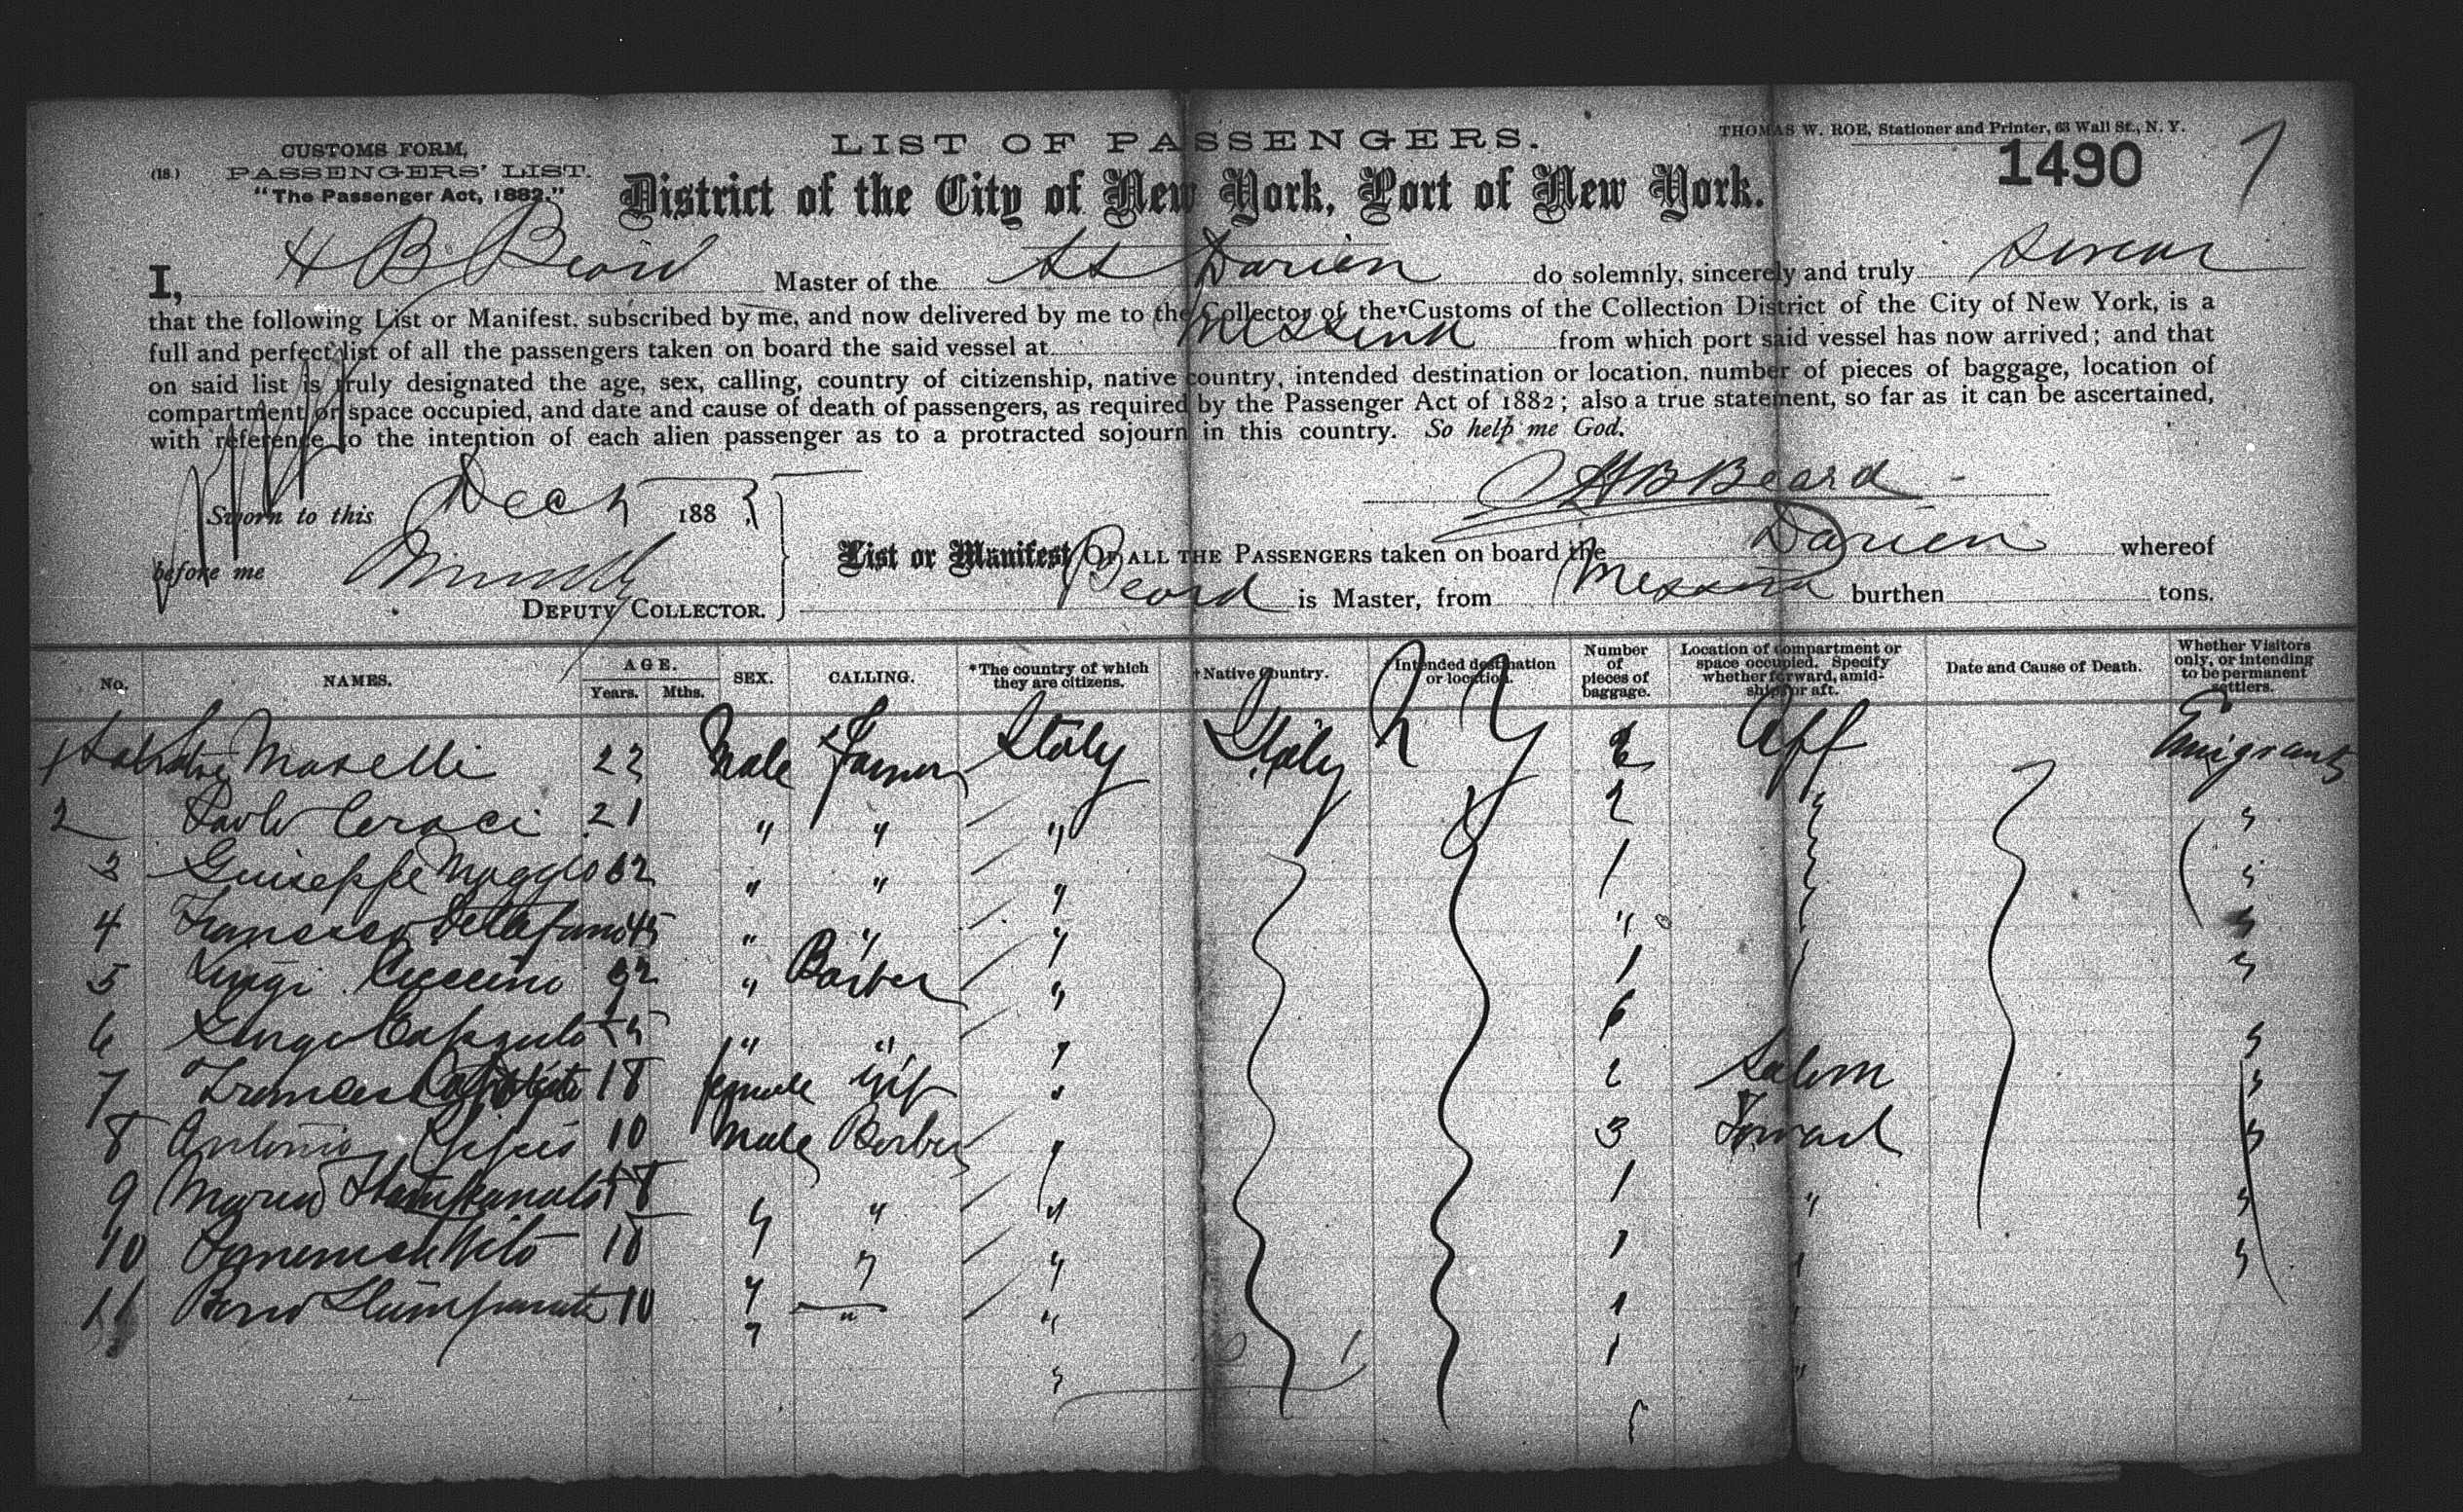 LIST OF PASSENGERS.
THOMAS W. ROE, Stationer and Printer, 63 Wall St., N. Y.
CUSTOMS FORM,
(18.) PASSENGERS' LIST.
"The Passenger Act, 1882."
1490
District of the City of New York, Port of New York.
I, H B Beard Master of the SS Darien do solemnly, sincerely and truly swear
that the following List or Manifest, subscribed by me, and now delivered by me to the Collector of the Customs of the Collection District of the City of New York, is a
full and perfect list of all the passengers taken on board the said vessel at Messina from which port said vessel has now arrived; and that
on said list is truly designated the age, sex, calling, country of citizenship, native country, intended destination or location, number of pieces of baggage, location of
compartment or space occupied, and date and cause of death of passengers, as required by the Passenger Act of 1882; also a true statement, so far as it can be ascertained,
with reference to the intention of each alien passenger as to a protracted sojourn in this country. So help me God.
H B Beard
Sworn to this Dec 188
before me
DEPUTY COLLECTOR.
List or Manifest OF ALL THE PASSENGERS taken on board the Darien whereof
Beard is Master, from Messina burthen tons.
No. NAMES. AGE. Years. Mths. SEX. CALLING. *The country of which they are citizens. †Native Country. Intended destination or location. Number of pieces of baggage. Location of compartment or space occupied. Specify whether forward, amidships or aft. Date and Cause of Death. Whether Visitors only, or intending to be permanent settlers.
1 Maselli 23 Male Farmer Italy Italy N Y 2 Aft Emigrants
2 Paolo Ceraci 21 " " " 2 "
3 Guiseppe Maggio 32 " " " 1 "
4 45 " " " " "
5 Luigi 32 " Barber " 1 "
6 " " " 6 "
7 18 female wife " 2 Saloon "
8 Antonio 10 Male Barber " 3 Forward "
9 Maria 18 " " " 1 " "
10 Vito 18 " " " 1 "
11 10 " " " 1